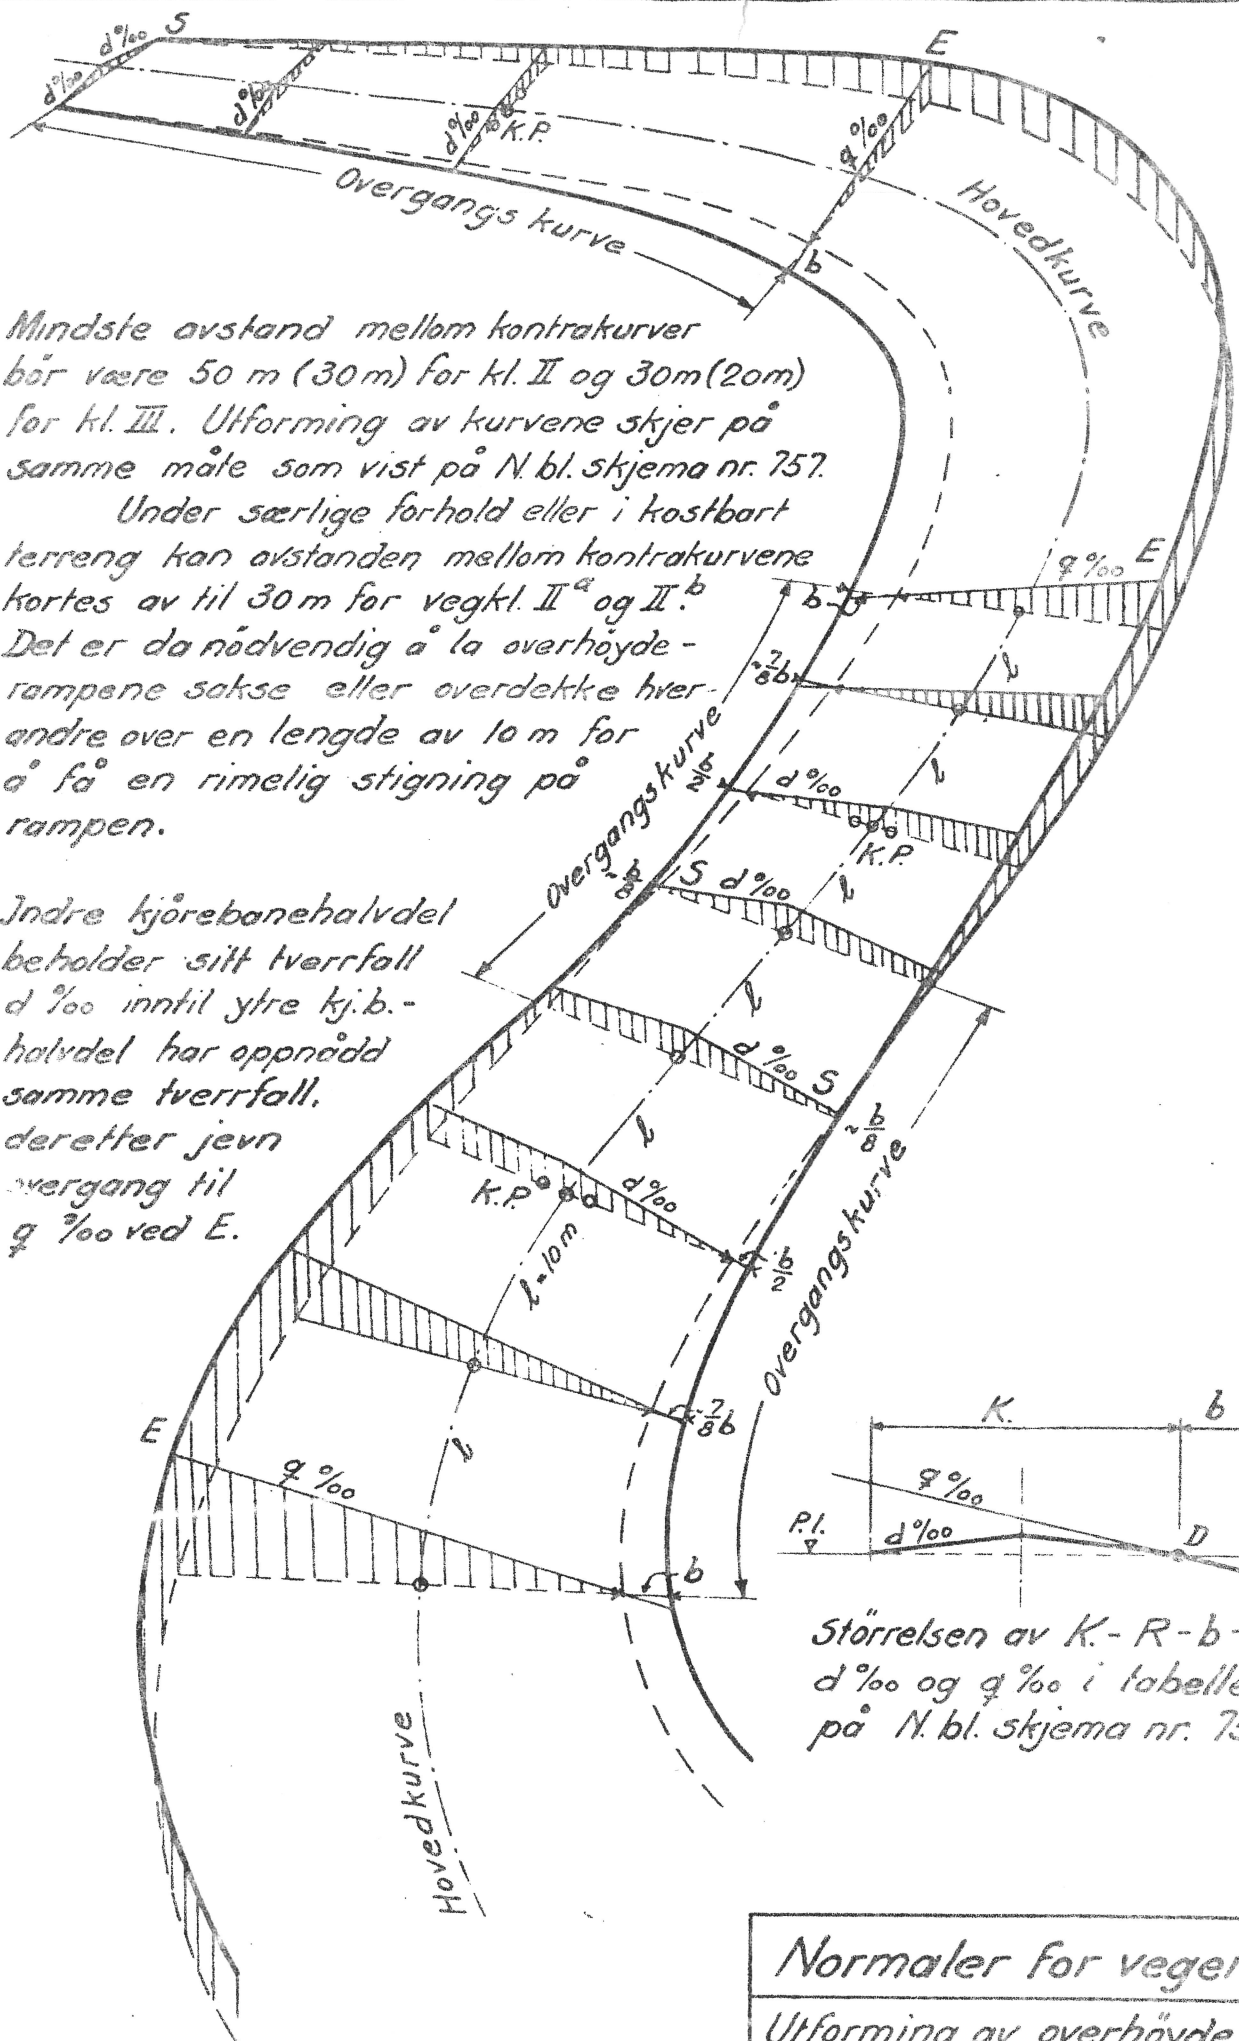 d‰ S
d‰
d‰
d‰
K.P.
E
q‰
Overgangskurve
b
Hovedkurve
Mindste avstand mellom kontrakurver
bör være 50 m (30m) for kl. II og 30m (20m)
for kl. III. Utforming av kurvene skjer på
samme måte som vist på N. bl. skjema nr. 757.
Under særlige forhold eller i kostbart
terreng kan avstanden mellom kontrakurvene
kortes av til 30 m for vegkl. IIa og IIb.
Det er da nödvendig å la overhöyde-
rampene sakse eller overdekke hver-
andre over en lengde av 10 m for
å få en rimelig stigning på
rampen.
Indre kjörebanehalvdel
beholder sitt tverrfall
d‰ inntil ytre kj.b.-
halvdel har oppnådd
samme tverrfall,
deretter jevn
overgang til
q‰ ved E.
b q‰ E
l
~7/8b
l
Overgangskurve
b/2 d‰
K.P.
l
~b/8 S d‰
l
d‰ S
~b/8
l
K.P. d‰
b/2
l=10m
Overgangskurve
~7/8b
l
E
q‰
b
Hovedkurve
K. b
q‰
P.l. d‰ D
Störrelsen av K.-R-b-
d‰ og q‰ i tabelle
på N. bl. skjema nr. 75
Normaler for veger
Utforming av overhöyde